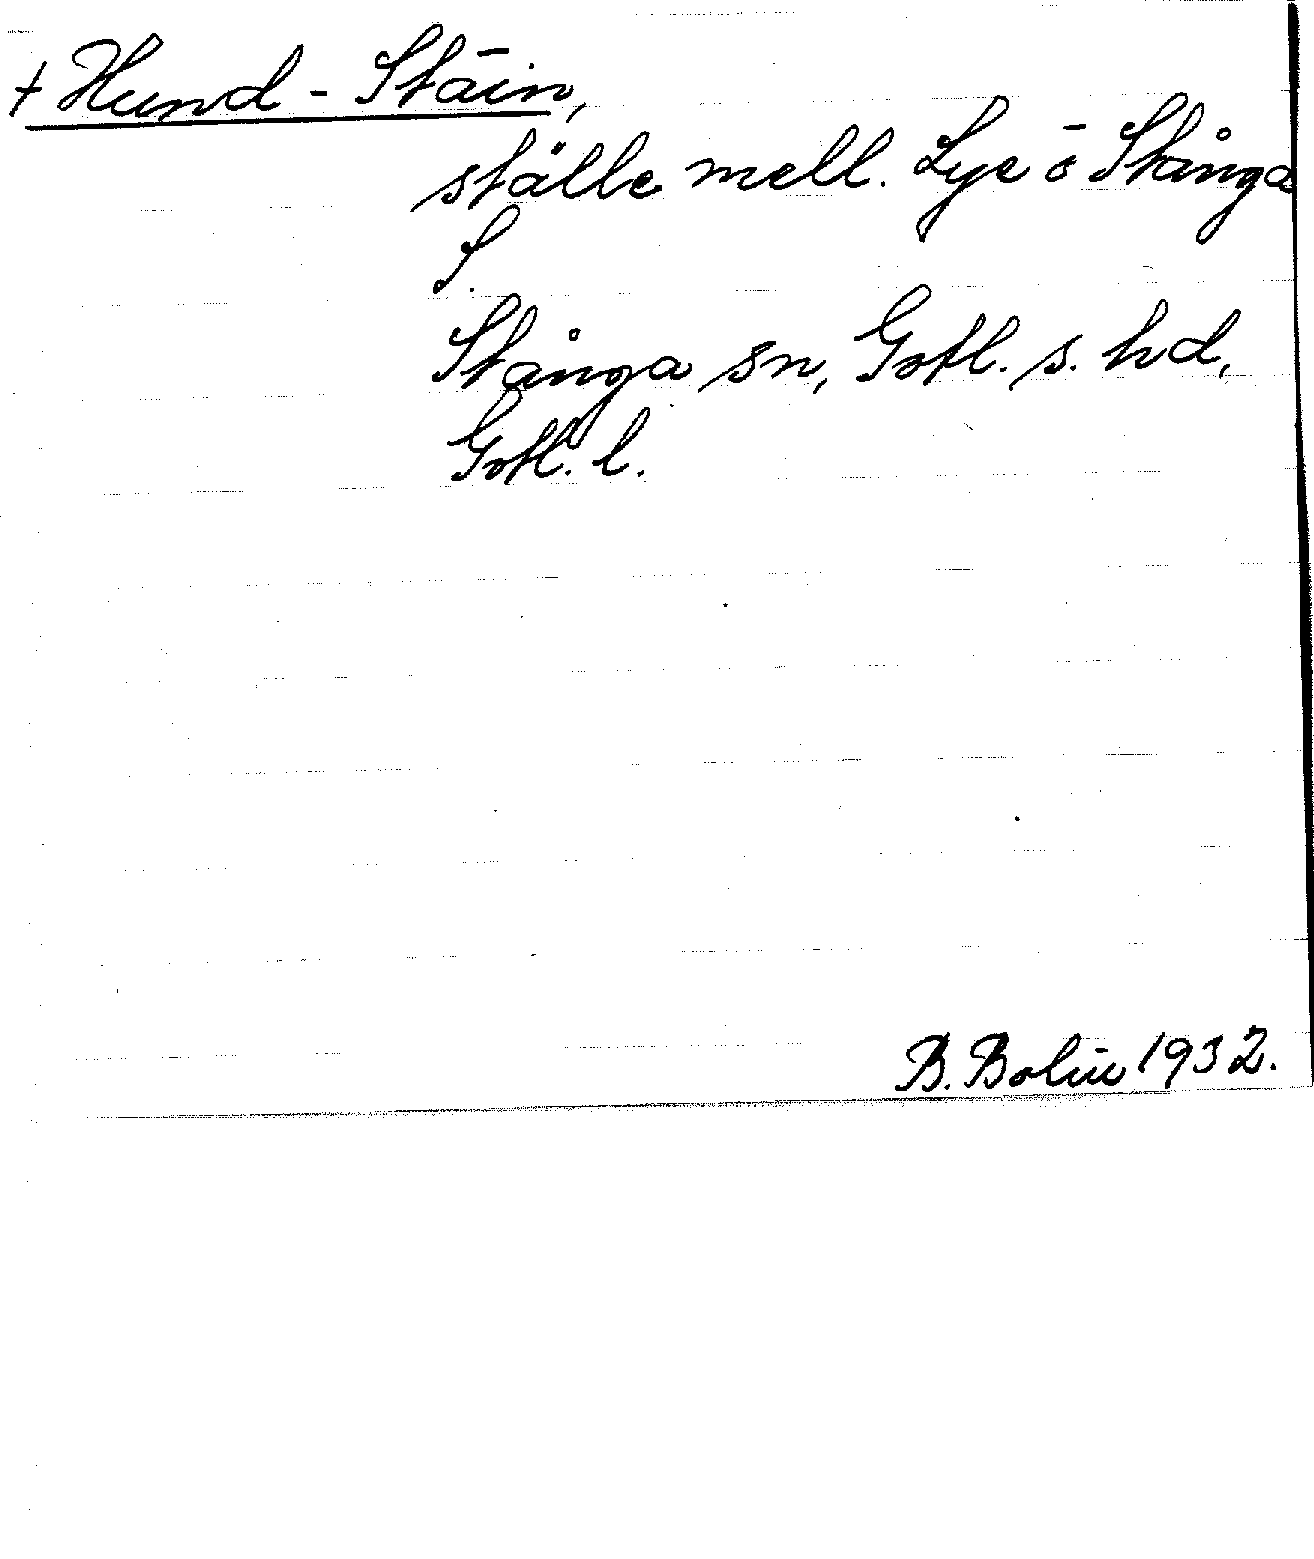 + Hund-Stäin,
ställe mell. Lye ō Stånga
S.
Stånga sn, Gotl. s. hd,
Gotl. l.
B. Bolin 1932.